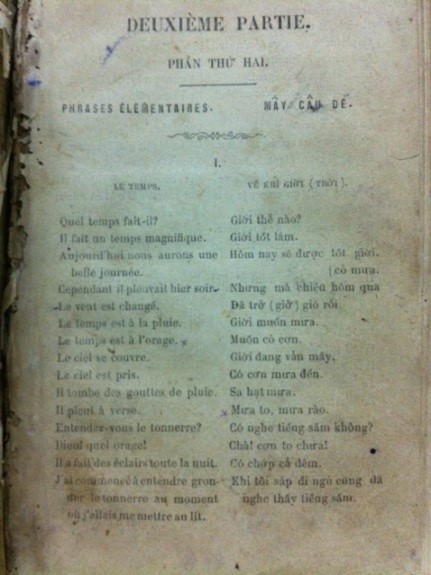 DEUXIÈME PARTIE.
PHẦN THỨ HAI.
PHRASES ÉLÉMENTAIRES. MẤY CÂU DỄ.
I.
LE TEMPS. VỀ KHÍ GIỜI (TRỜI).
Quel temps fait-il? Giời thế nào?
Il fait un temps magnifique. Giời tốt lắm.
Aujourd'hui nous aurons une Hôm nay sẽ được tốt giời.
belle journée. (có mưa.
Cependant il pleuvait hier soir. Nhưng mà chiều hôm qua
Le vent est changé. Đã trở (giở) gió rồi.
Le temps est à la pluie. Giời muốn mưa.
Le temps est à l'orage. Muốn có cơn.
Le ciel se couvre. Giời đang vần mây.
Le ciel est pris. Có cơn mưa đến.
Il tombe des gouttes de pluie. Sa hạt mưa.
Il pleut à verse. Mưa to, mưa rào.
Entendez-vous le tonnerre? Có nghe tiếng sấm không?
Dieu! quel orage! Chà! cơn to chưa!
Il a fait des éclairs toute la nuit. Có chớp cả đêm.
J'ai commencé à entendre gron- Khi tôi sắp đi ngủ cũng đã
der le tonnerre au moment nghe thấy tiếng sấm.
où j'allais me mettre au lit.